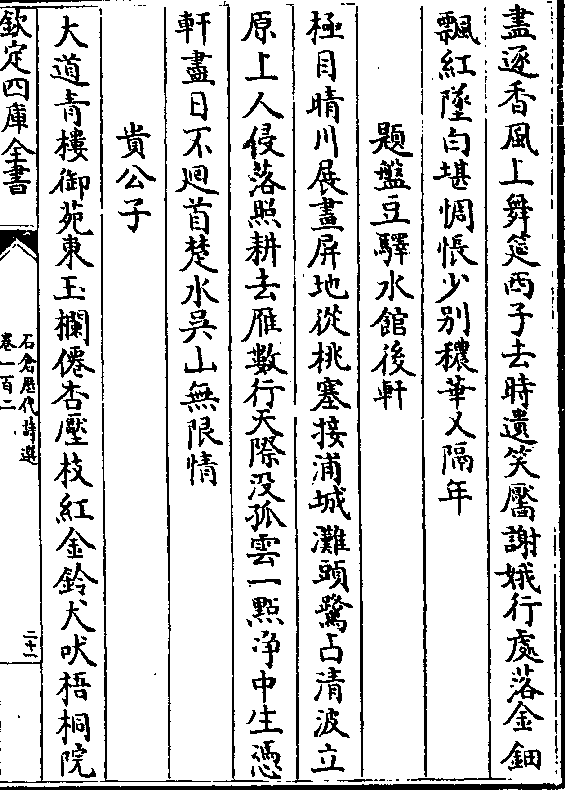 盡逐香風上舞筵西子去時遺笑靨謝娥行處落金鈿
飄紅墜白堪惆悵少别穠華又隔年
題盤豆驛水館後軒
極目晴川展畫屏地從桃塞接浦城灘頭鷺占清波立
原上人侵落照耕去雁數行天際没孤雲一點浄中生憑
軒盡日不迴首楚水吳山無限情
貴公子
大道青樓御苑東玉欄僊杏壓枝紅金鈴犬吠梧桐院
欽定四庫全書
石倉歷代詩選
卷一百二
二十一